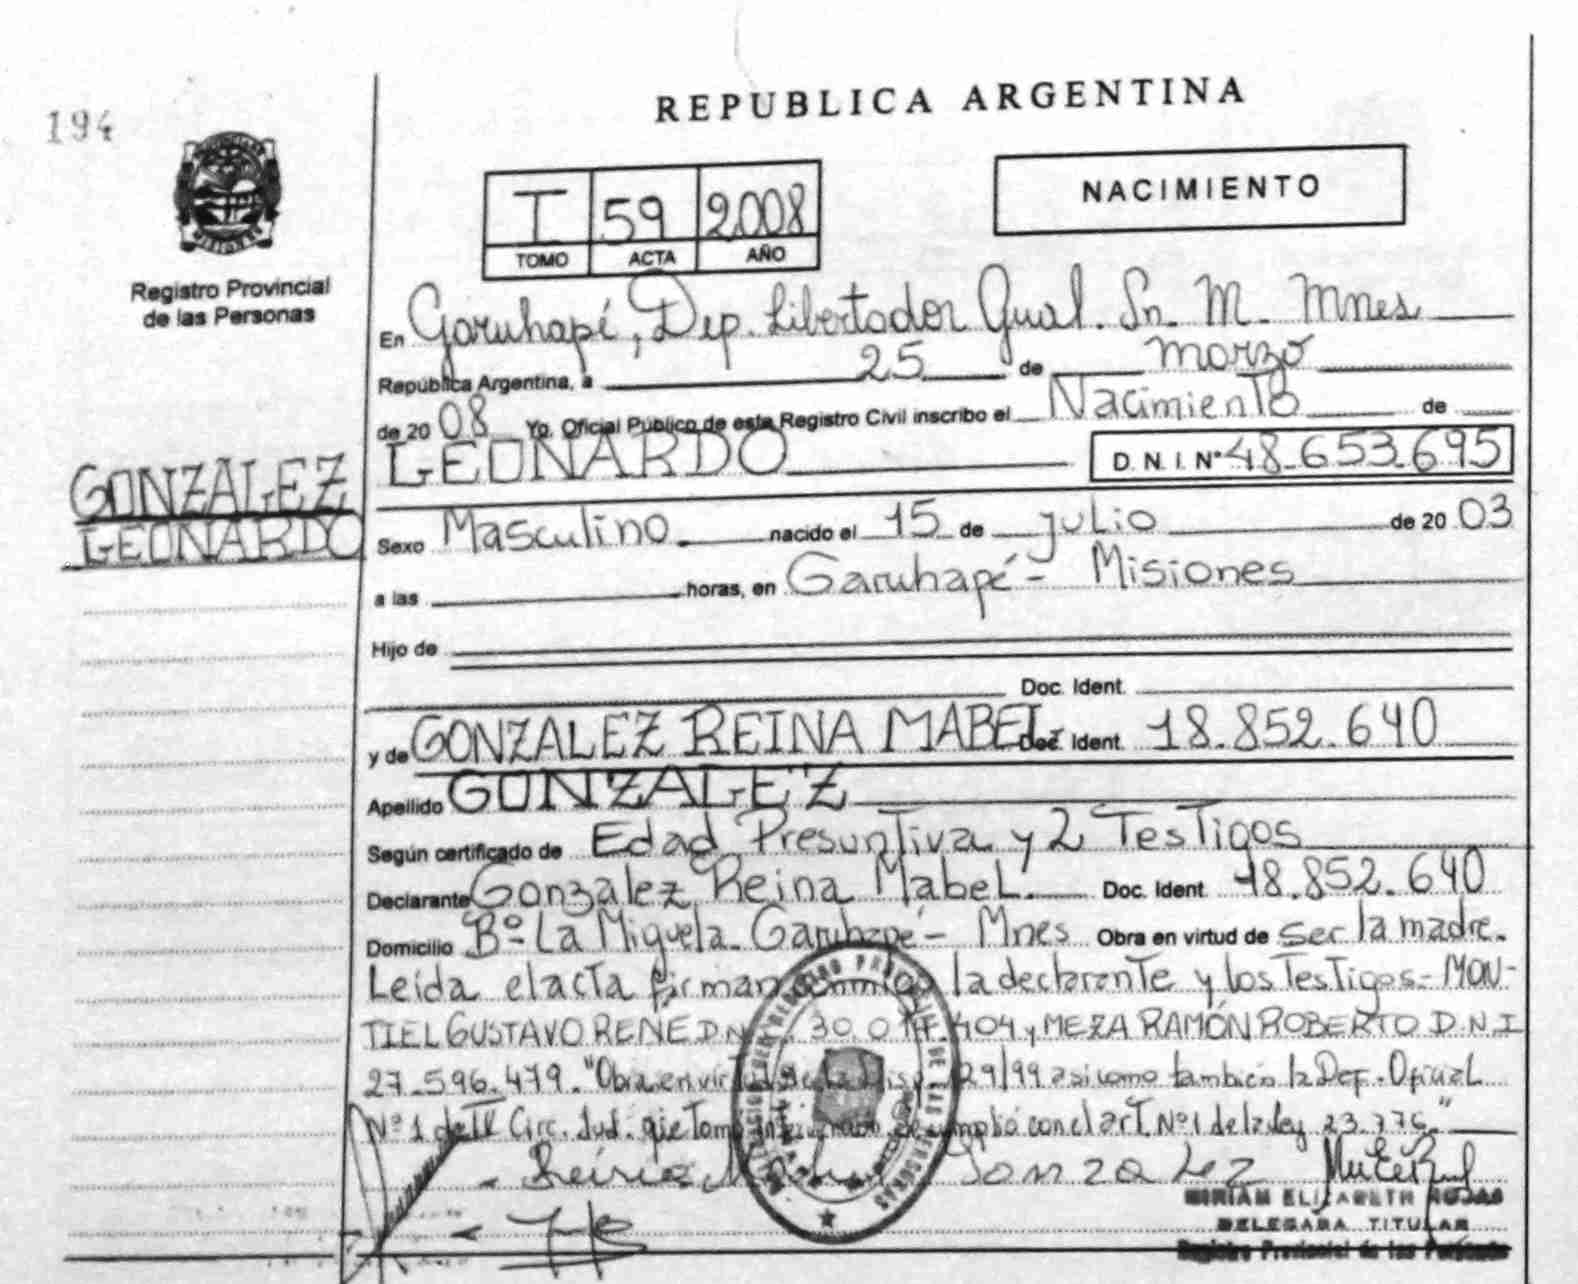 194
REPUBLICA ARGENTINA
PROVINCIA
MISIONES
Registro Provincial
de las Personas
I 59 2008
TOMO ACTA AÑO
NACIMIENTO
En Garuhapé, Dep. Libertador Gral. Sn. M. Mnes
República Argentina, a 25 de marzo
de 2008 Yo, Oficial Público de este Registro Civil inscribo el Nacimiento de
GONZALEZ
LEONARDO
LEONARDO D.N.I. Nº 48.653.695
Sexo Masculino nacido el 15 de julio de 2003
a las horas, en Garuhapé - Misiones
Hijo de
Doc. Ident.
y de GONZALEZ REINA MABEL Doc. Ident. 18.852.640
Apellido GONZALEZ
Según certificado de Edad Presuntiva y 2 Testigos
Declarante Gonzalez Reina Mabel. Doc. Ident. 18.852.640
Domicilio Bº La Miguela. Garuhapé - Mnes Obra en virtud de ser la madre.
Leída el acta firman conmigo la declarante y los Testigos - MON-
TIEL GUSTAVO RENE D.N. 30.0 404 y MEZA RAMÓN ROBERTO D.N.I
27.596.479. "Obra en virtud de la Disp. 29/99 asi como también la Def. Oficial
Nº 1 de IV Circ. Jud. que Tomó se cumplió con el art. Nº 1 de la ley 23.776."
Reina Gonzalez
MIRIAM ELIZABETH ROJAS
DELEGADA TITULAR
Registro Provincial de las Personas